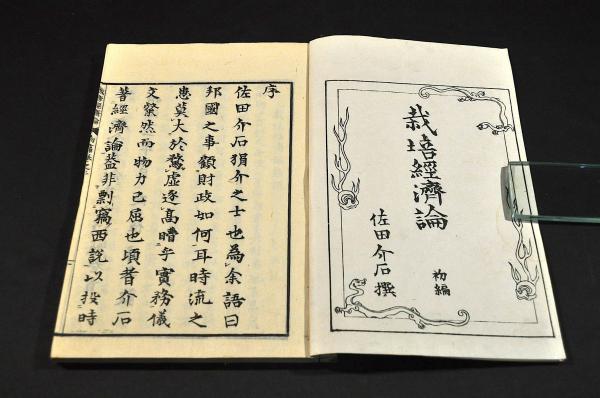 栽培經濟論
初編
佐田介石撰
序
佐田介石狷介之士也為余語曰
邦國之事顧財政如何耳時流之
患莫大於騖虛逐高瞶乎實務儀
文縈然而物力已屈也頃昔介石
著經濟論蓋非剽竊西說以投時